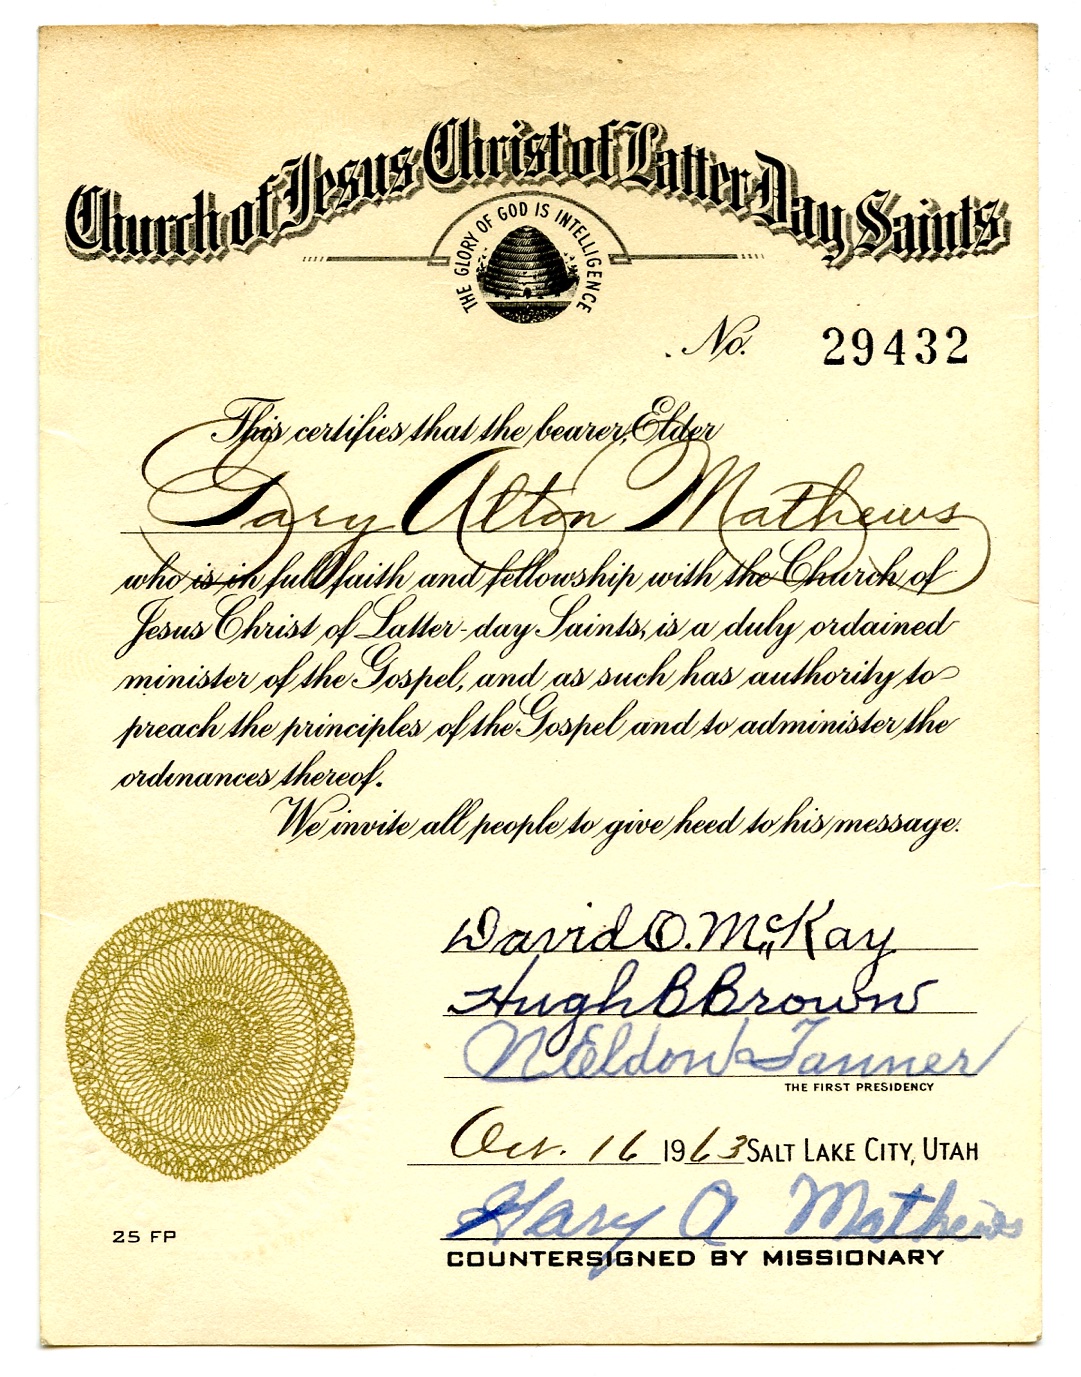 Church of Jesus Christ of Latter Day Saints
THE GLORY OF GOD IS INTELLIGENCE
No. 29432
This certifies that the bearer, Elder
Gary Alton Mathews
who is in full faith and fellowship with the Church of
Jesus Christ of Latter-day Saints, is a duly ordained
minister of the Gospel, and as such has authority to
preach the principles of the Gospel and to administer the
ordinances thereof.
We invite all people to give heed to his message.
David O. McKay
Hugh B Brown
N Eldon Tanner
THE FIRST PRESIDENCY
Oct. 16 1963 SALT LAKE CITY, UTAH
Gary A Mathews
25 FP
COUNTERSIGNED BY MISSIONARY